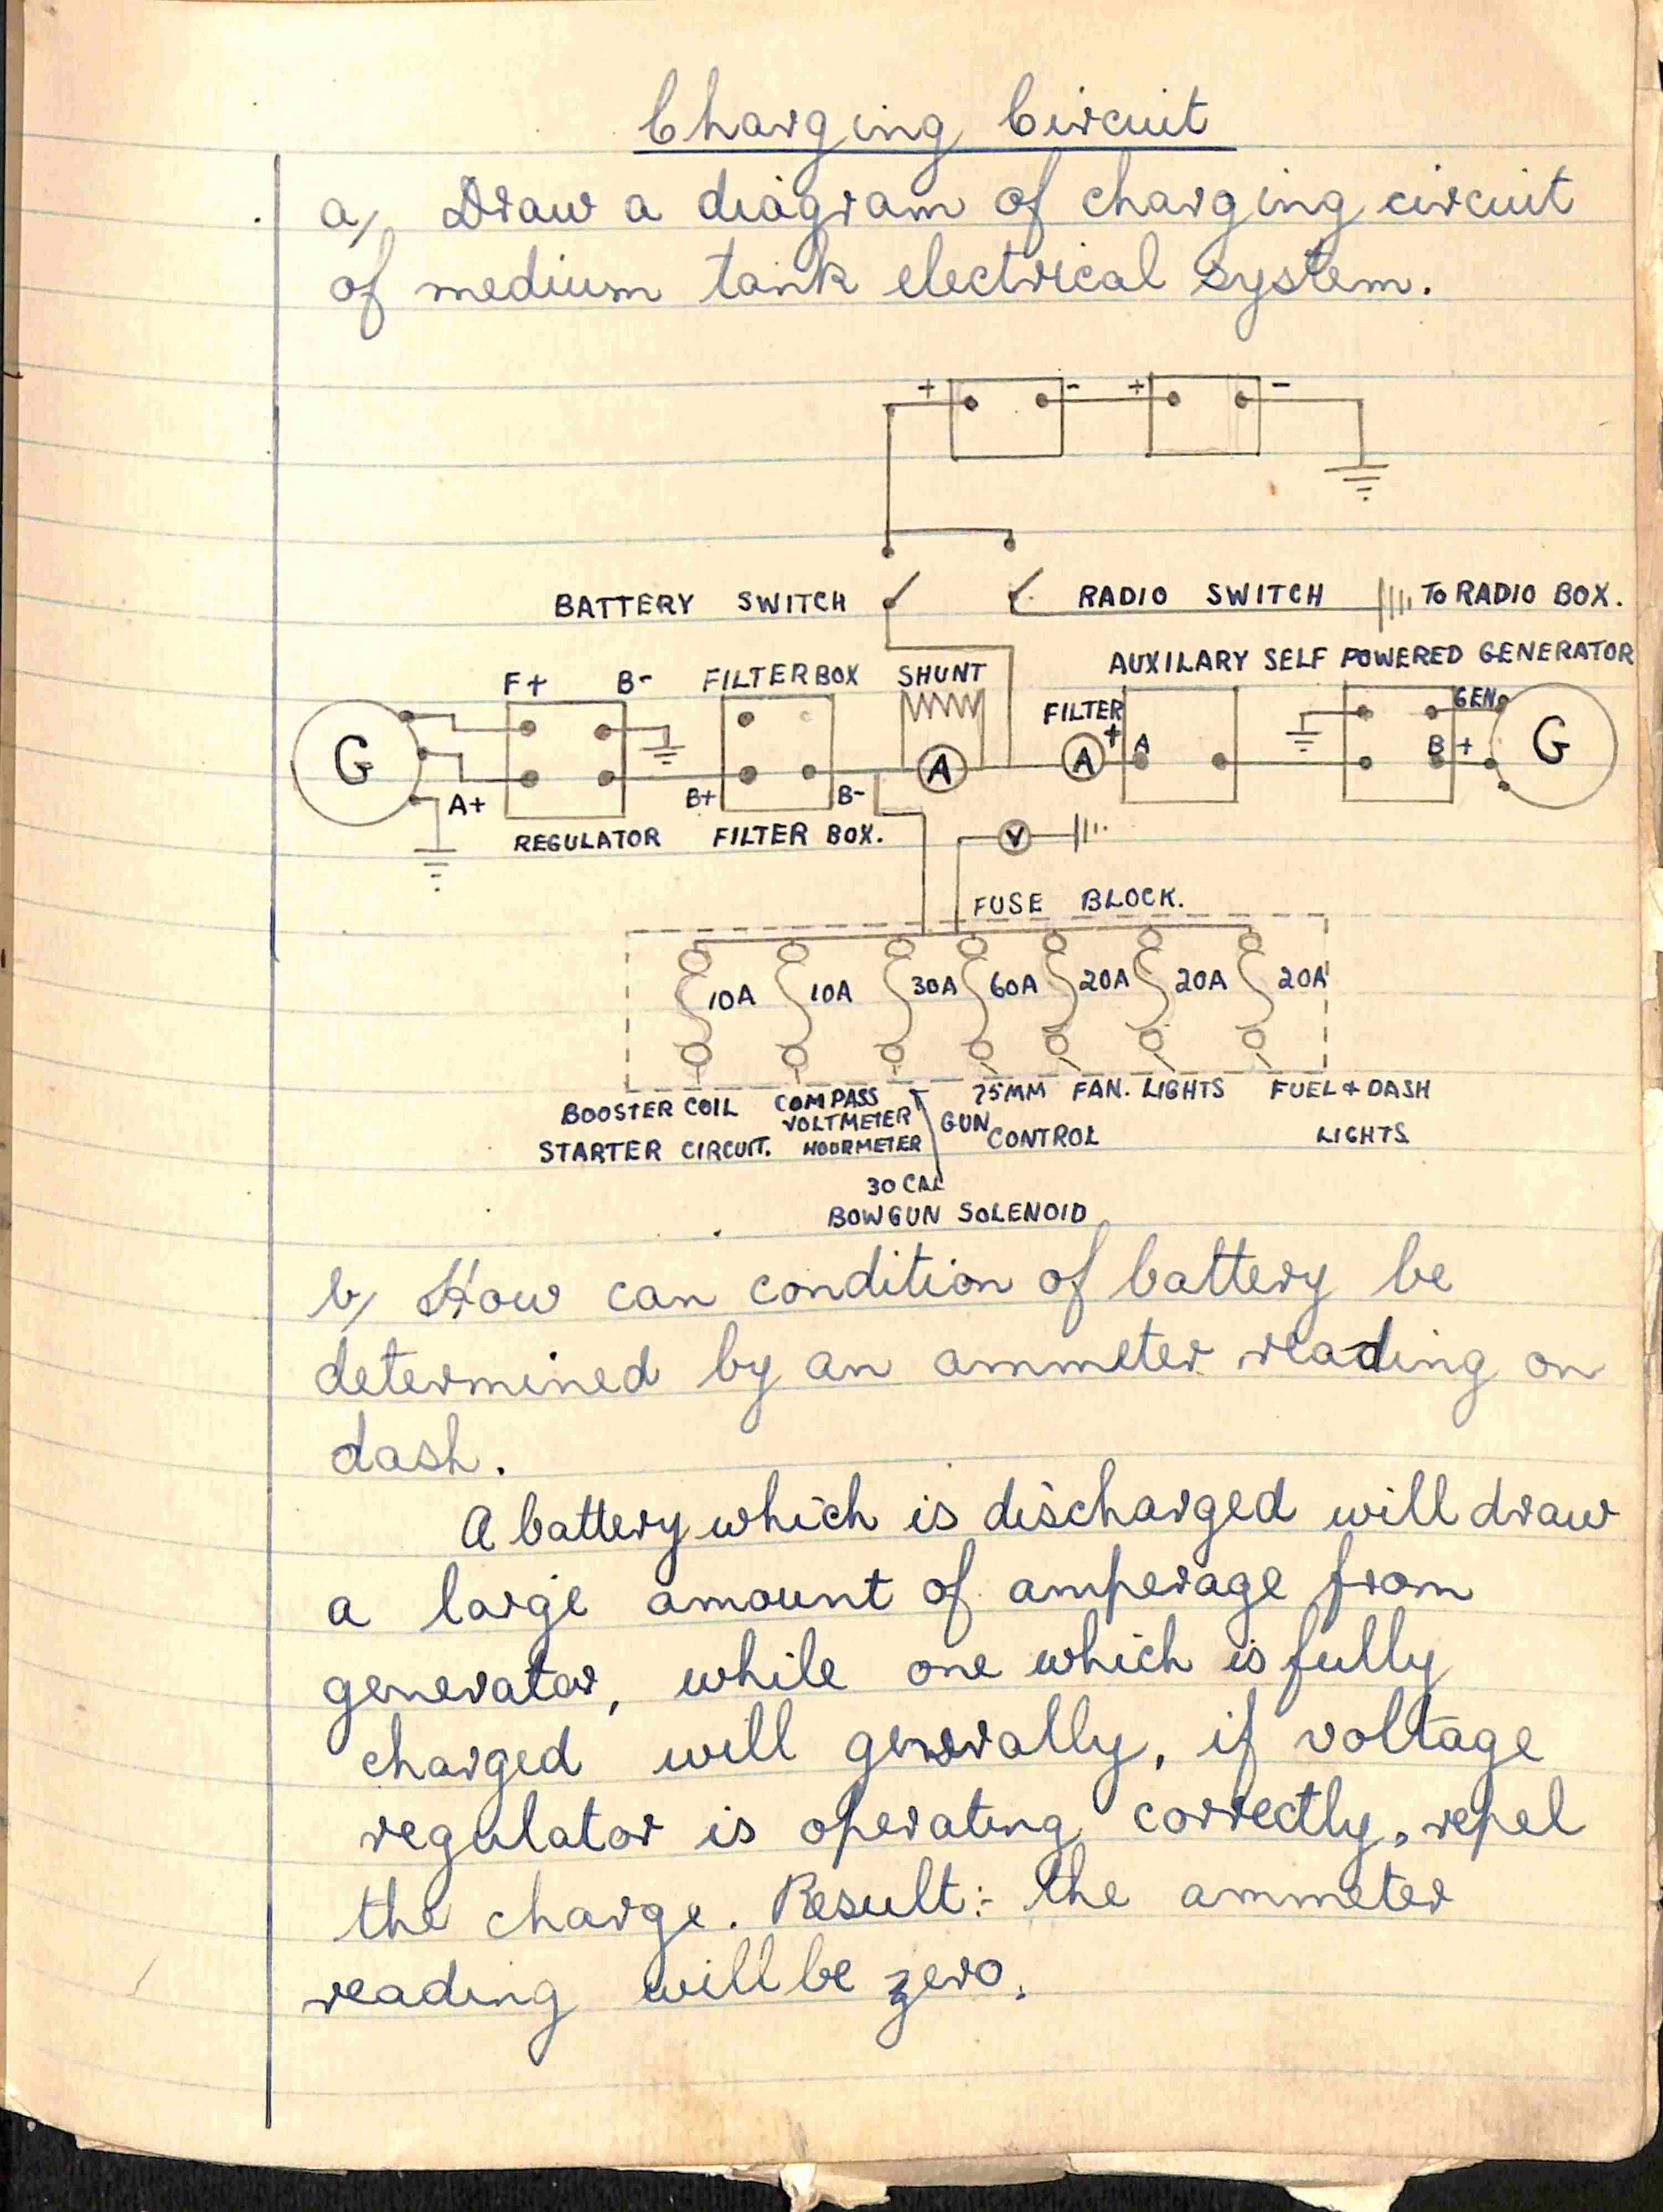 Charging Circuit
a, Draw a diagram of charging circuit
of medium tank electrical system.
+ - + -
BATTERY SWITCH RADIO SWITCH TO RADIO BOX.
AUXILARY SELF POWERED GENERATOR
F+ B- FILTERBOX SHUNT
FILTER GEN
G A A + A B + G
A+ B+ B-
REGULATOR FILTER BOX. V
FUSE BLOCK.
10A 10A 30A 60A 20A 20A 20A
BOOSTER COIL COMPASS 75MM FAN. LIGHTS FUEL & DASH
VOLTMETER GUN CONTROL LIGHTS
STARTER CIRCUIT. HOURMETER
30 CAL
BOWGUN SOLENOID
b, How can condition of battery be
determined by an ammeter reading on
dash.
A battery which is discharged will draw
a large amount of amperage from
generator, while one which is fully
charged will generally, if voltage
regulator is operating correctly, repel
the charge. Result:- the ammeter
reading will be zero.